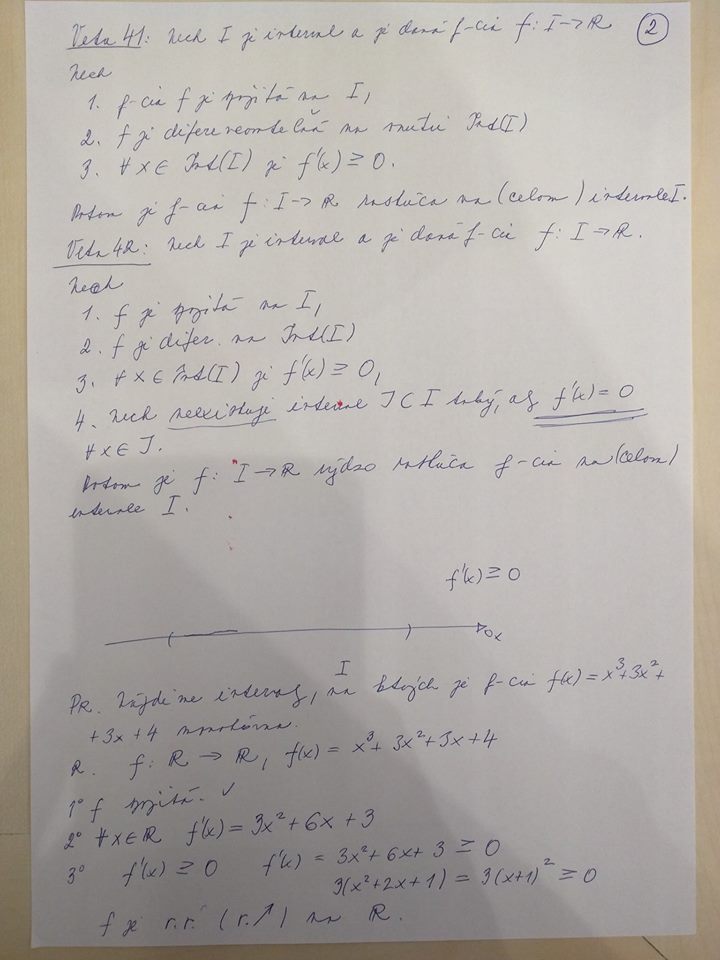 Veta 41: Nech I je interval a je daná f-cia f: I → ℝ
②
Nech
1. f-cia f je spojitá na I,
2. f je diferencovateľná na vnútri Int(I)
3. ∀ x ∈ Int(I) je f'(x) ≥ 0.
Potom je f-cia f: I → ℝ rastúca na (celom) intervale I.
Veta 42: Nech I je interval a je daná f-cia f: I → ℝ.
Nech
1. f je spojitá na I,
2. f je difer. na Int(I)
3. ∀ x ∈ Int(I) je f'(x) ≥ 0,
4. Nech neexistuje interval J ⊂ I taký, až f'(x) = 0
∀ x ∈ J.
Potom je f: I → ℝ rýdzo rastúca f-cia na (celom)
intervale I.
f'(x) ≥ 0
( ) 0x
I
PR. Nájdime intervaly, na ktorých je f-cia f(x) = x³+3x²+
+3x+4 monotónna.
R. f: ℝ → ℝ, f(x) = x³+3x²+3x+4
1° f spojitá. ✓
2° ∀x∈ℝ f'(x) = 3x²+6x+3
3° f'(x) ≥ 0 f'(x) = 3x²+6x+3 ≥ 0
3(x²+2x+1) = 3(x+1)² ≥ 0
f je r.r. (r.↗) na ℝ.